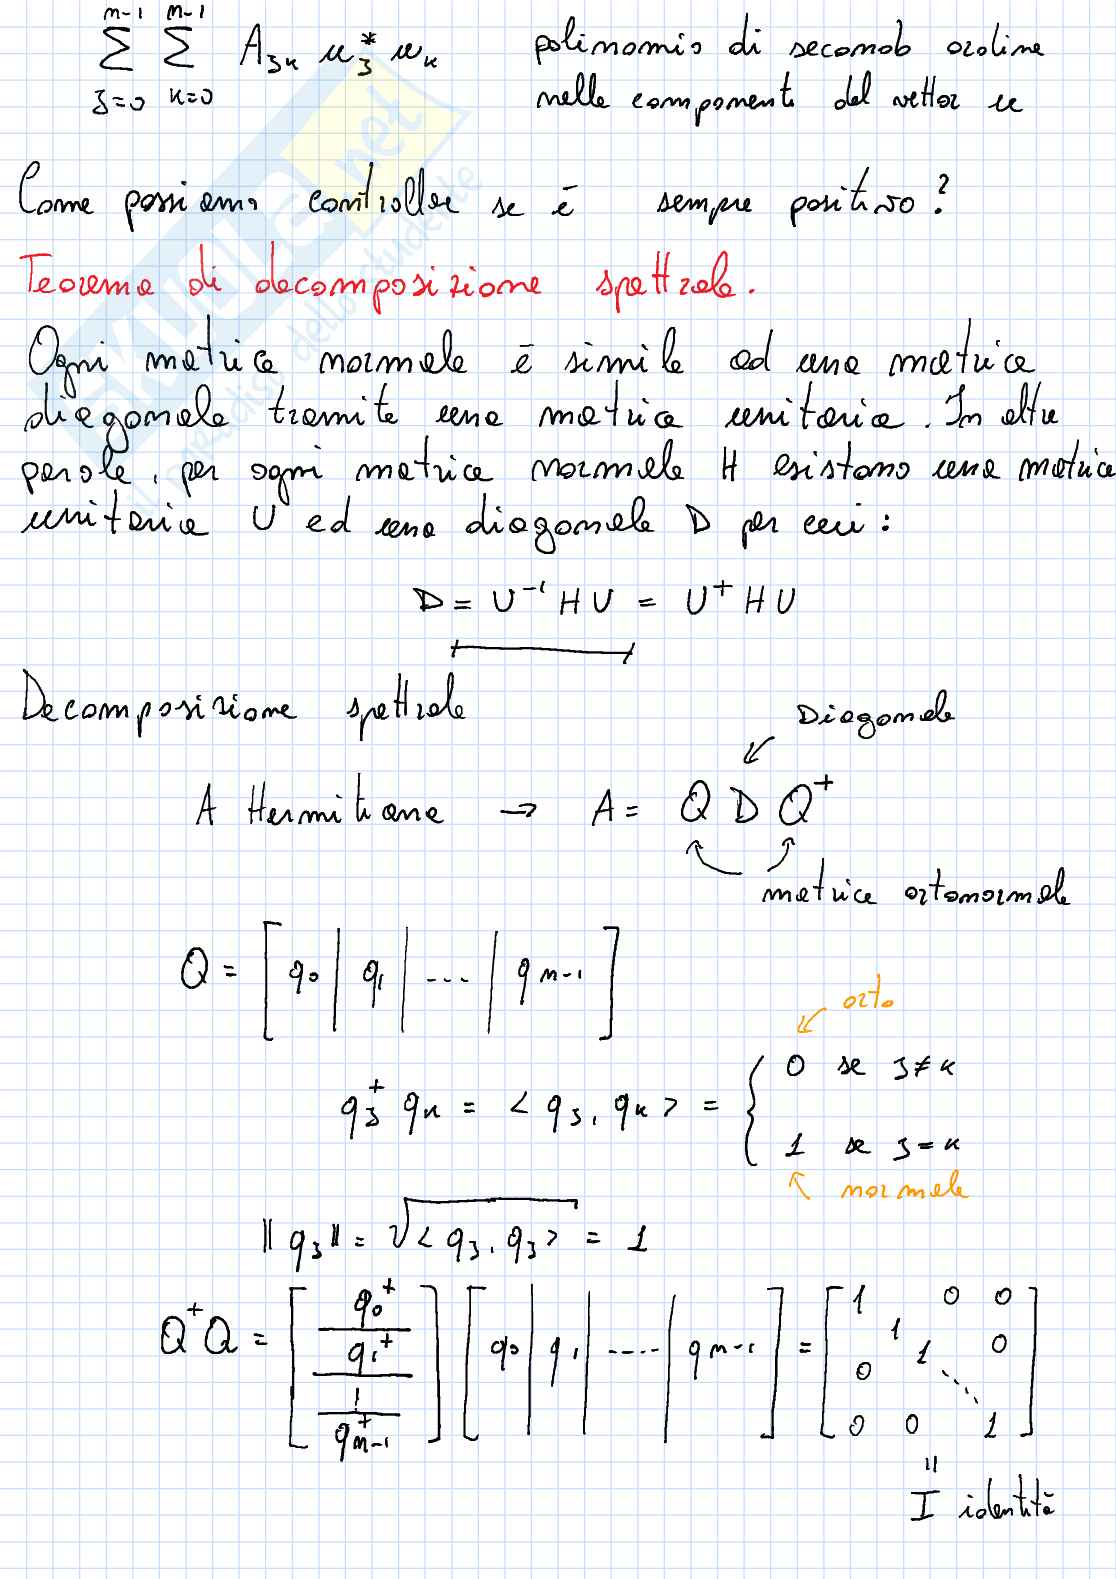 n-1 n-1
∑ ∑ A_jk u_j^* u_k polinomio di secondo ordine
j=0 k=0 nelle componenti del vettor u
Come possiamo controllar se è sempre positivo?
Teorema di decomposizione spettrale.
Ogni matrice normale è simile ad una matrice
diagonale tramite una matrice unitaria. In altre
parole, per ogni matrice normale H esistono una matrice
unitaria U ed una diagonale D per cui:
D = U^-1 H U = U^+ H U
Decomposizione spettrale
Diagonale
A Hermitiana → A = Q D Q^+
matrice ortonormale
Q = [ q_0 | q_1 | ... | q_n-1 ]
orto
0 se j ≠ k
q_j^+ q_k = < q_j, q_k > = {
1 se j = k
normale
‖ q_j ‖ = √< q_j, q_j > = 1
Q^+ Q = [ q_0^+ / q_1^+ / ¦ / q_n-1^+ ] [ q_0 | q_1 | ..... | q_n-1 ] = [ 1 0 0 / 1 / 0 1 0 / 0 0 1 ]
=
I identità
SKUOLA.net
il paradiso dello studente